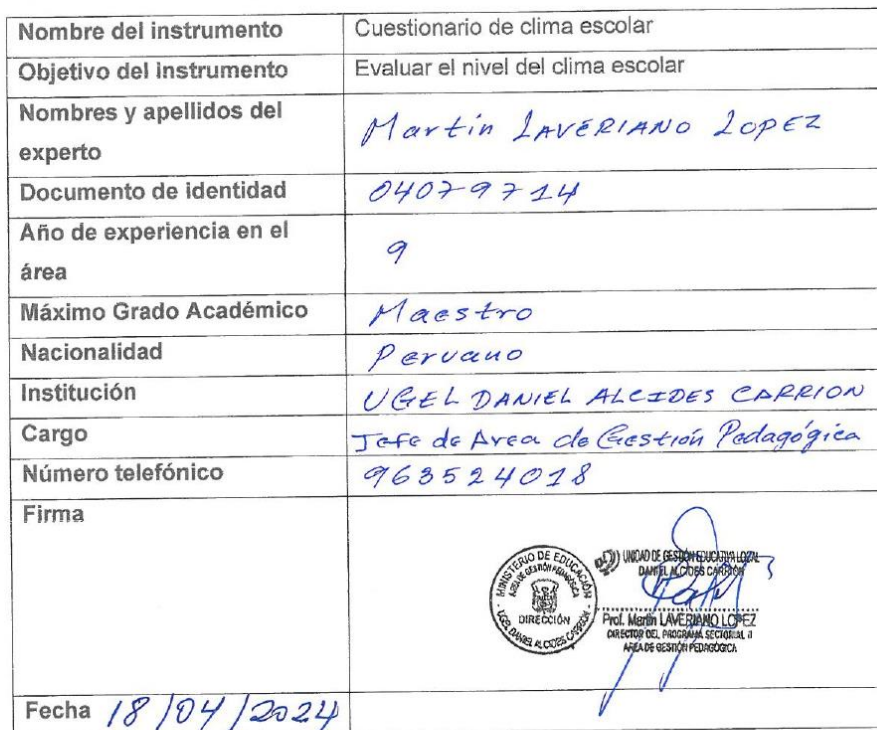 Nombre del instrumento Cuestionario de clima escolar
Objetivo del instrumento Evaluar el nivel del clima escolar
Nombres y apellidos del
experto
Martin LAVERIANO LOPEZ
Documento de identidad 04079714
Año de experiencia en el
área
9
Máximo Grado Académico Maestro
Nacionalidad Peruano
Institución UGEL DANIEL ALCIDES CARRION
Cargo Jefe de Area de Gestión Pedagógica
Número telefónico 963524018
Firma
MINISTERIO DE EDUCACIÓN
AREA DE GESTIÓN PEDAGÓGICA
DIRECCIÓN
UGEL DANIEL ALCIDES CARRIÓN
UNIDAD DE GESTIÓN EDUCATIVA LOCAL
DANIEL ALCIDES CARRIÓN
Prof. Martin LAVERIANO LOPEZ
DIRECTOR DEL PROGRAMA SECTORIAL II
AREA DE GESTIÓN PEDAGÓGICA
Fecha 18/04/2024